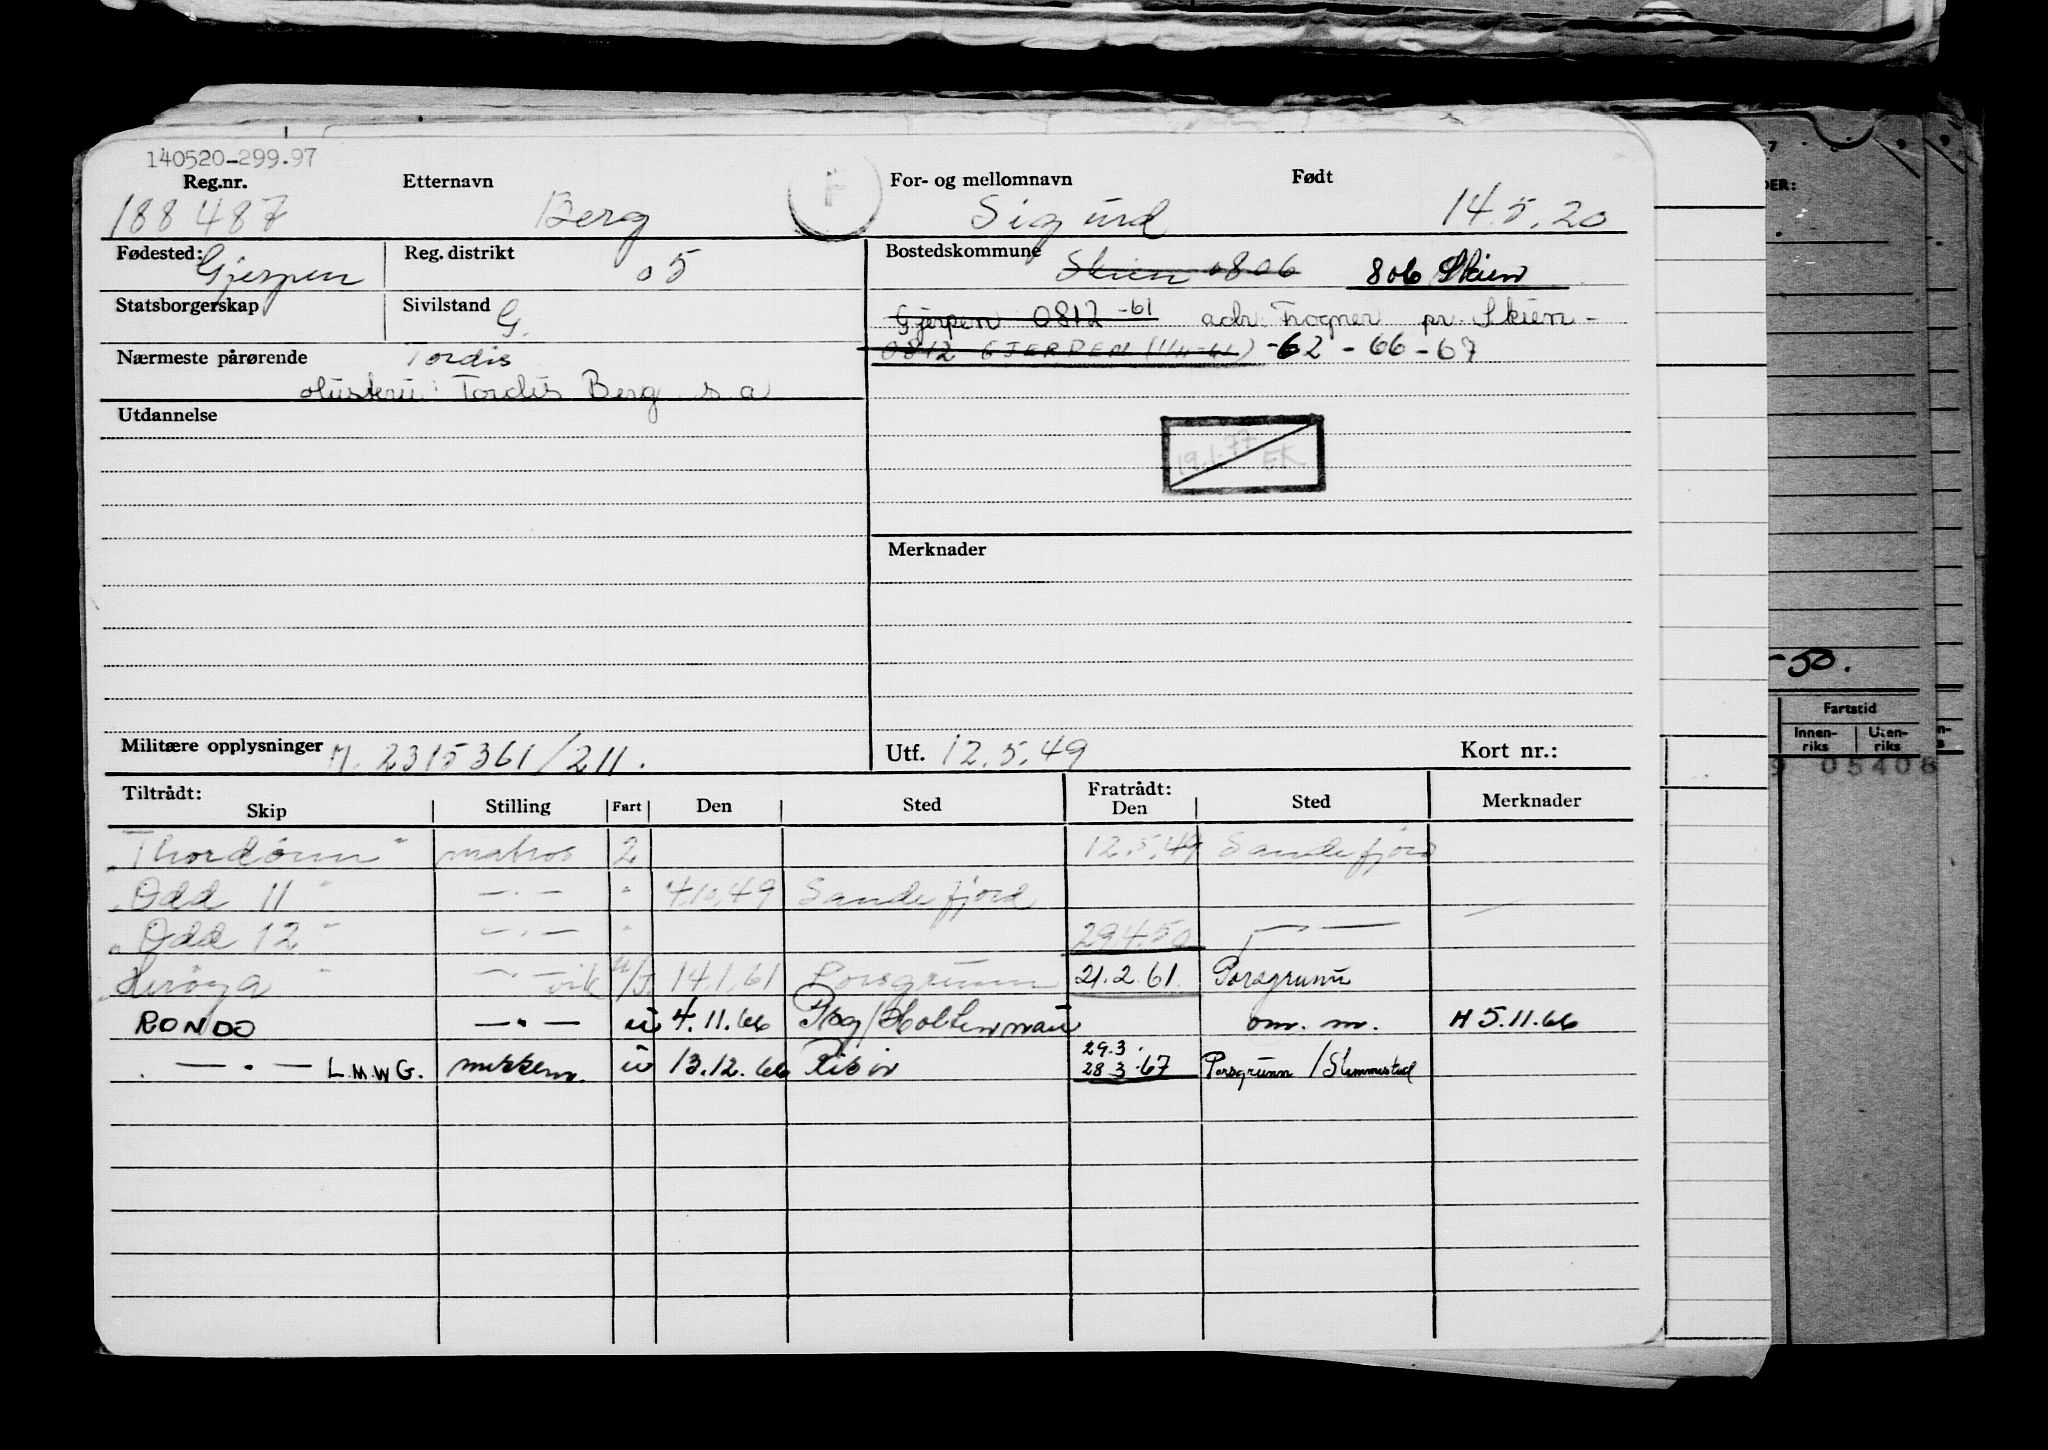 140520-299.97
Reg.nr. Etternavn F For- og mellomnavn Født
188487 Berg Sigurd 14.5.20
Fødested: Gjerpen Reg. distrikt 05 Bostedskommune Skien 0806 806 Skien
Statsborgerskap Sivilstand G. Gjerpen 0812 -61 adr. Frogner pr. Skien -
Nærmeste pårørende Tordis 0812 GJERPEN -62 - 66 - 67
Hustru: Tordis Berg s.a
Utdannelse
19.1.77 EK
Merknader
Militære opplysninger M. 2315361/211. Utf. 12.5.49 Kort nr.:
Tiltrådt: Fratrådt:
Skip Stilling Fart Den Sted Den Sted Merknader
"Thordønn" matros 2 12.5.49 Sandefjord
"Odd 11" — . — " 4.10.49 Sandefjord
"Odd 12" — . — " 29.4.50 — . —
"Herøya" — . — vik u/I 14.1.61 Porsgrunn 21.2.61 Porsgrunn
RONDO — . — u 4.11.66 Psg/Holtenmau om. m. H 5.11.66
— . — L.M.W.G. u 13.12.66 29.3. 28.3.67 Porsgrunn / Slemmestad
DER:
-50.
Fartstid
Innen-riks Uten-riks
9 05406